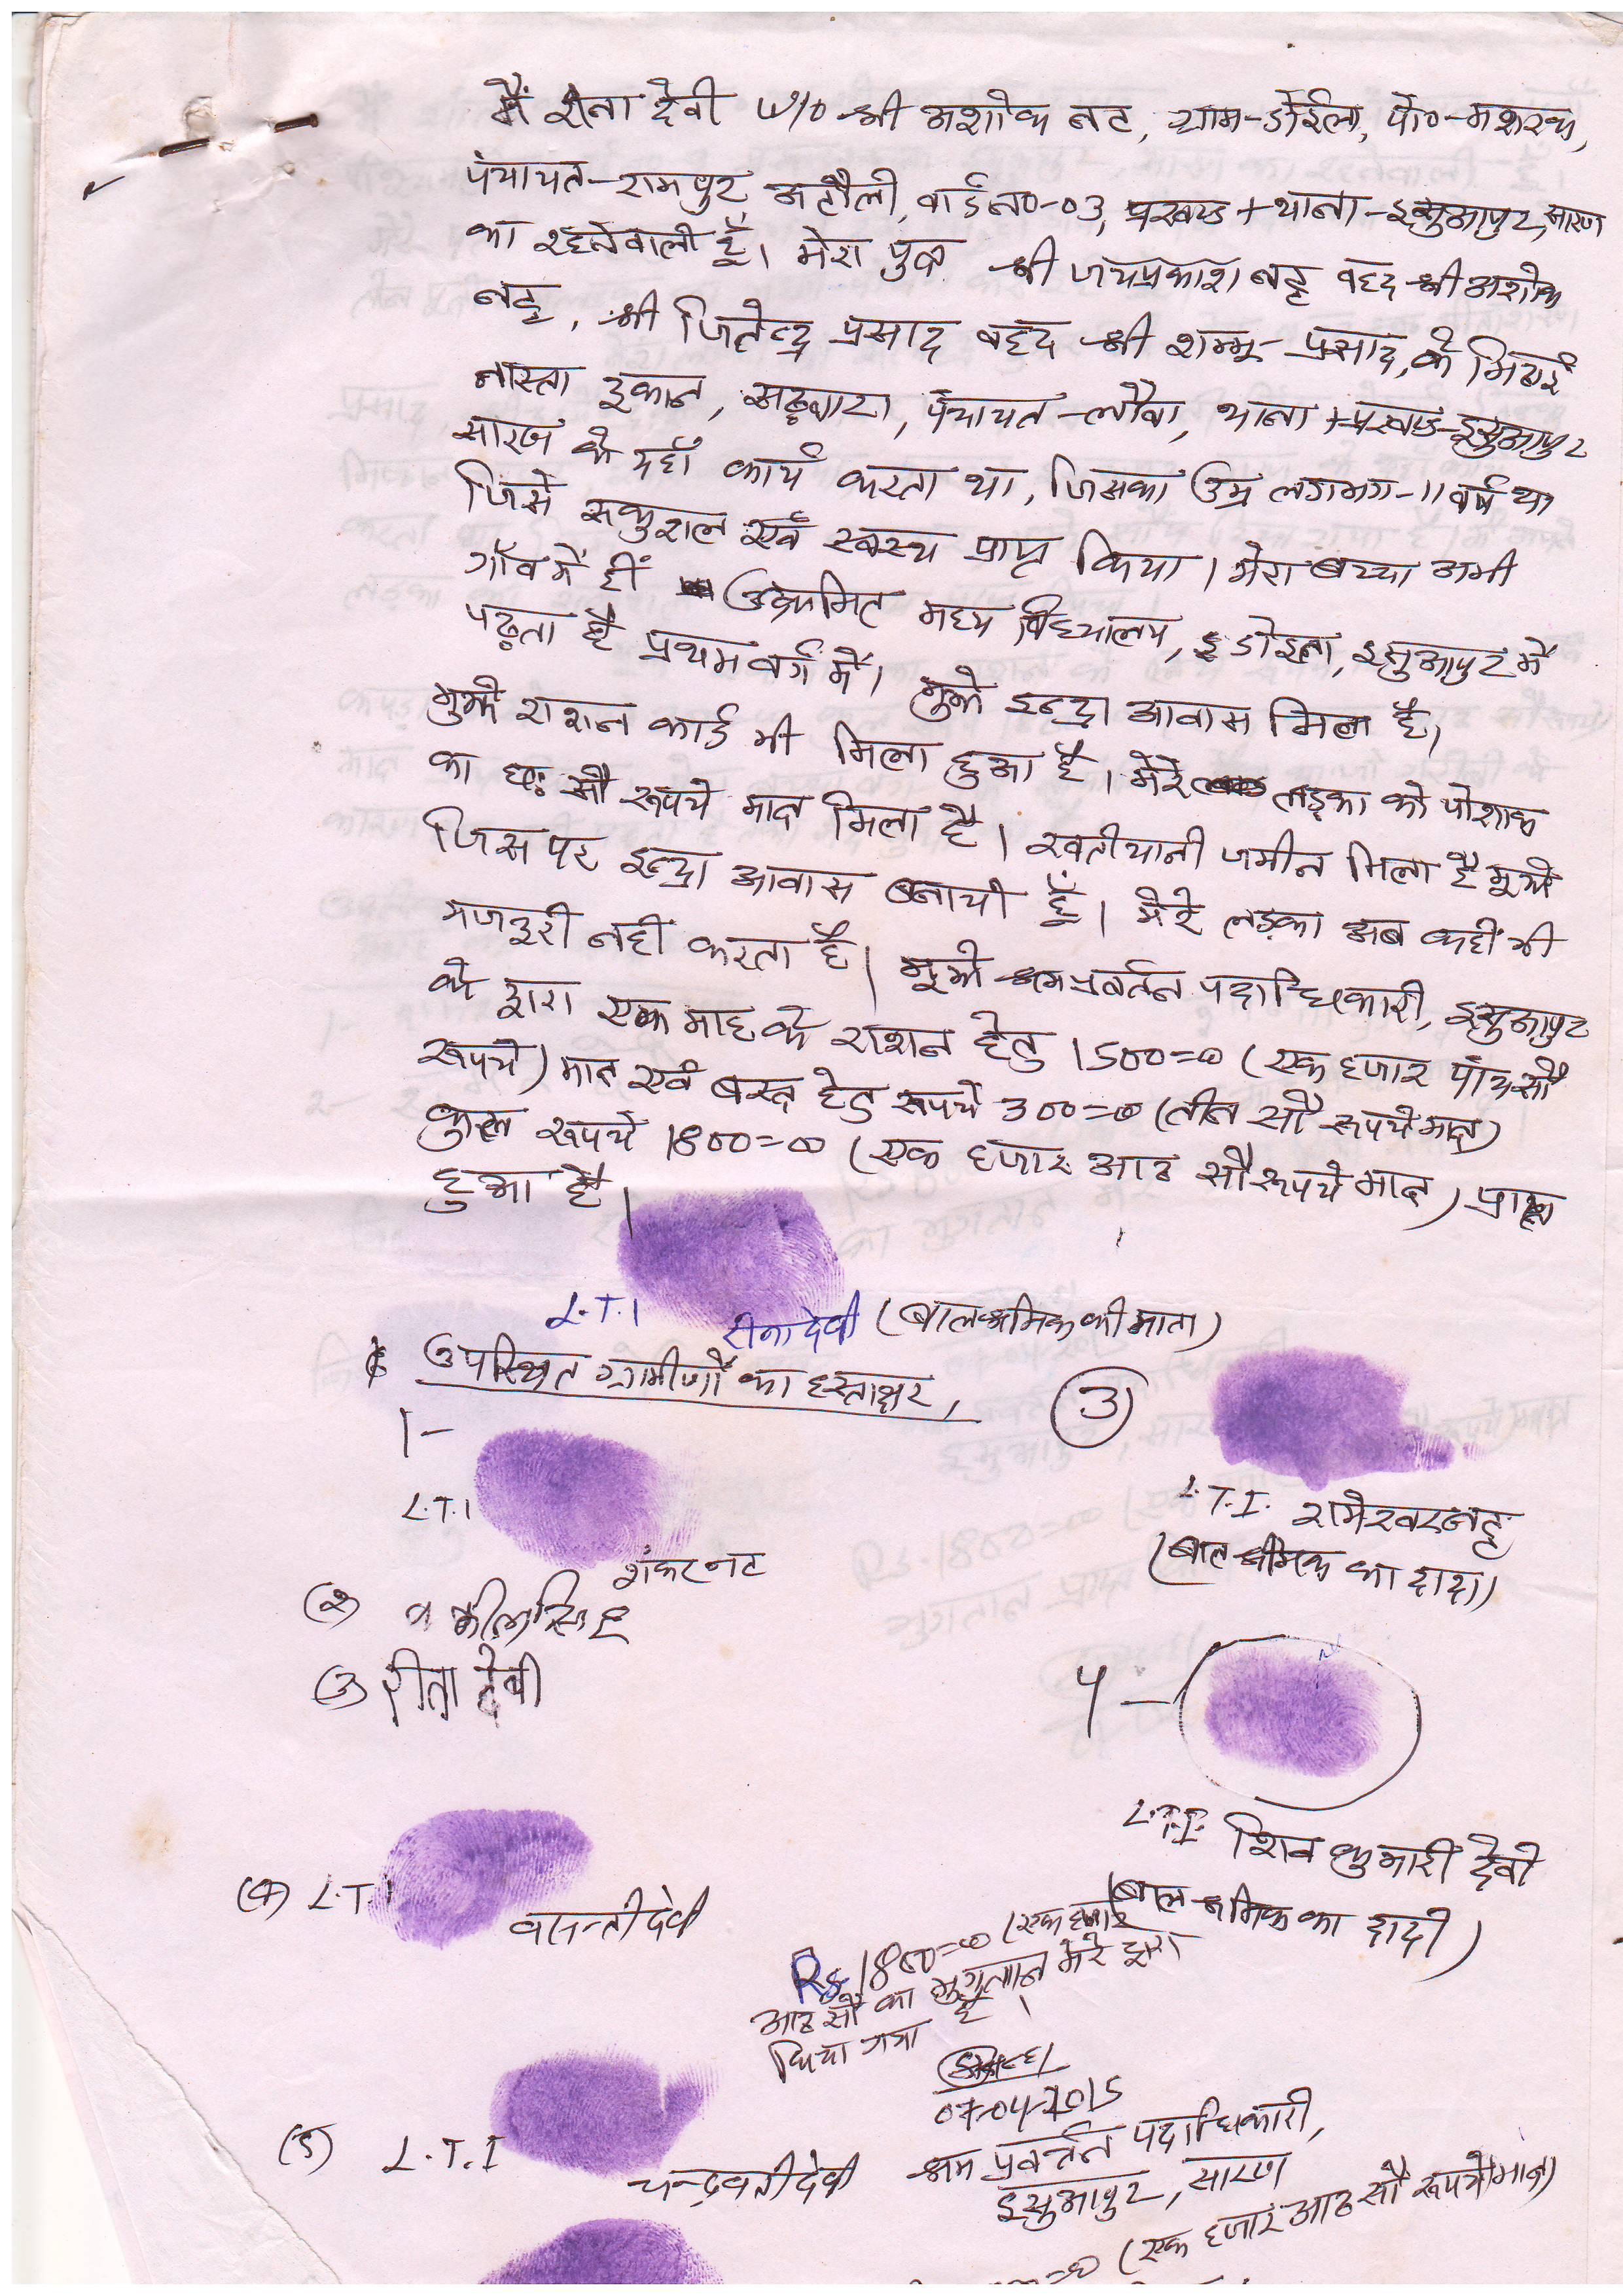 मैं रीना देवी W/O श्री अशोक नट, ग्राम-डोईला, पो०-मशरक,
पंचायत-रामपुर अटौली, वार्ड न०-03, प्रखण्ड + थाना-इसुआपुर, सारण
का रहनेवाली हूँ। मेरा पुत्र श्री जयप्रकाश नट्ट वल्द श्री अशोक
नट्ट, श्री जितेन्द्र प्रसाद वल्द श्री शम्भू प्रसाद, के मिठाई
नास्ता दुकान, पंचायत-लौवा, थाना + प्रखण्ड-इसुआपुर
सारण के यहाँ कार्य करता था, जिसका उम्र लगभग-11 वर्ष था
जिसे सकुशल एवं स्वस्थ प्राप्त किया। मेरा बच्चा अभी
गाँव में हीं उत्क्रमित मध्य विद्यालय, डोइला, इसुआपुर में
पढ़ता है प्रथम वर्ग में। मुझे इन्द्रा आवास मिला है।
मुझे राशन कार्ड भी मिला हुआ है। मेरे लड़का को पोशाक
का छः सौ रूपये मात्र मिला है। खतीयानी जमीन मिला है मुझे
जिस पर इन्द्रा आवास बनायी हूँ। मेरे लड़का अब कहीं भी
मजदूरी नहीं करता है। मुझे श्रम प्रवर्तन पदाधिकारी, इसुआपुर
के द्वारा एक माह के राशन हेतु 1500=00 (एक हजार पाँच सौ
रूपये) मात्र एवं वस्त्र हेतु रूपये 300=00 (तीन सौ रूपये मात्र)
कुल रूपये 1800=00 (एक हजार आठ सौ रूपये मात्र) प्राप्त
हुआ है।
L.T.I रीना देवी (बाल श्रमिक की माता)
उपस्थित ग्रामीणों का हस्ताक्षर,
1-
L.T.I
शंकर नट
③
L.T.I. रामेश्वर नट्ट
(बाल श्रमिक का दादा)
(2) वकील सिंह
(3) रीता देवी
4-
L.T.I. शिव कुमारी देवी
(बाल श्रमिक का दादी)
(4) L.T.I
वासन्ती देवी
Rs. 1800=00 (एक हजार
आठ सौ का भुगतान मेरे द्वारा
किया गया है।
07-04-2015
श्रम प्रवर्त्तन पदाधिकारी,
इसुआपुर, सारण
(5) L.T.I
चन्द्रवती देवी
(एक हजार आठ सौ रूपये मात्र)